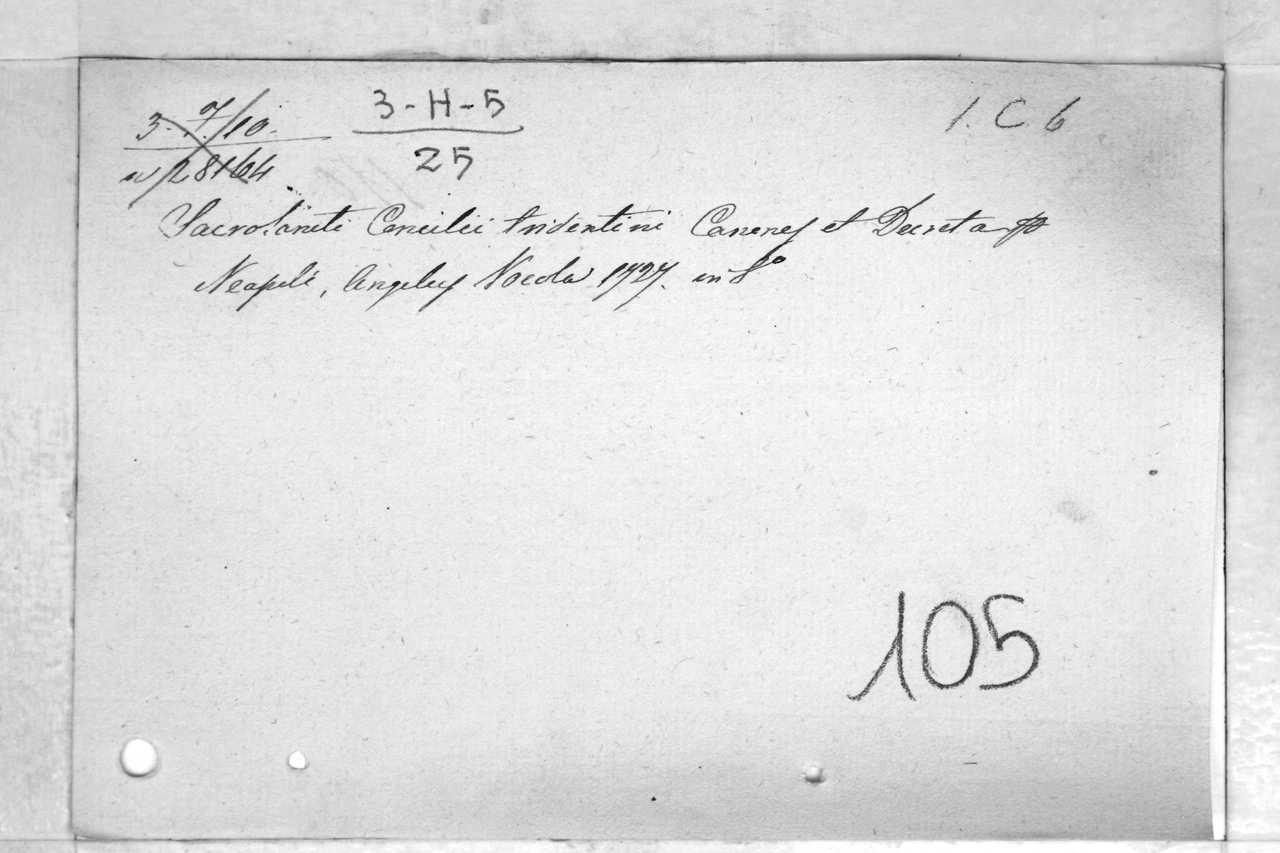 3-7/10. 3-H-5 1. C. 6
nº 28164 25
Sacrosancti Concilii tridentini Canones et Decreta
Neapoli, Angelus Vocola 1727. in 8º
105